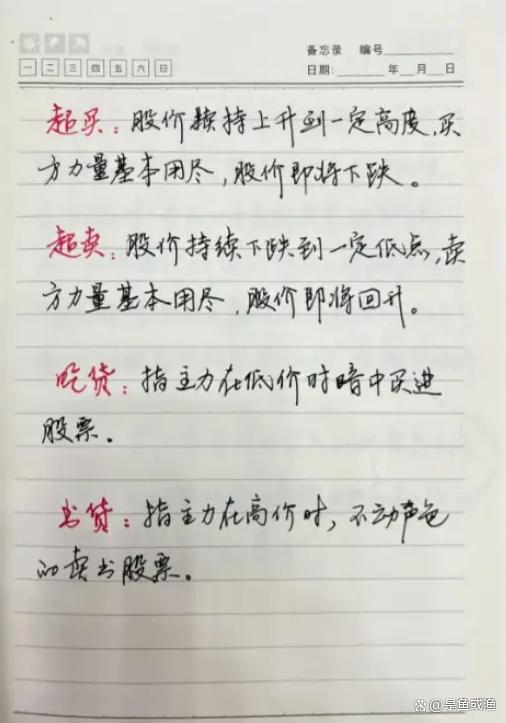 备忘录 编号
一 二 三 四 五 六 日
日期: 年 月 日
超买：股价持上升到一定高度,买
方力量基本用尽,股价即将下跌。
超卖：股价持续下跌到一定低点,卖
方力量基本用尽,股价即将回升。
吃货：指主力在低价时暗中买进
股票。
出货：指主力在高价时,不动声色
的卖出股票。
是鱼或渔